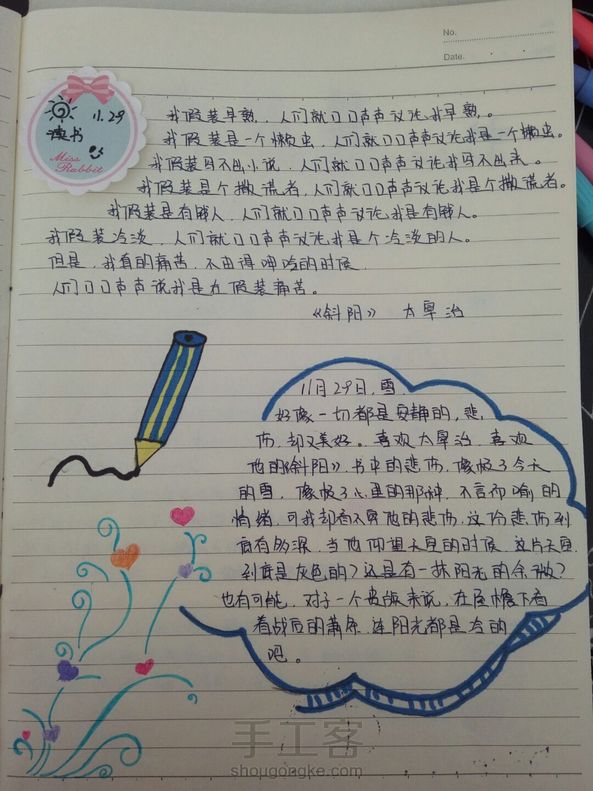 No.
Date.
11.29
读书
Miss
Rabbit
我假装早熟，人们就口口声声议论我早熟。
我假装是一个懒虫，人们就口口声声议论我是一个懒虫。
我假装写不出小说，人们就口口声声议论我写不出来。
我假装是个撒谎者，人们就口口声声议论我是个撒谎者。
我假装是有钱人，人们就口口声声议论我是有钱人。
我假装冷淡，人们就口口声声议论我是个冷淡的人。
但是，我真的痛苦，不由得呻吟的时候
人们口口声声说我是在假装痛苦。
《斜阳》 太宰治
11月29日，雪
好像一切都是安静的，悲
伤，却又美好。喜欢太宰治，喜欢
他的《斜阳》，书中的悲伤，像极了今天
的雪，像极了心里的那种，不言而喻的
情绪，可我却看不穿他的悲伤，这份悲伤到
底有多深，当他仰望天空的时候，这片天空
到底是灰色的？还是有一抹阳光的余
也有可能，对于一个贵族来说，在屋檐下看
着战后的萧条，连阳光都是冷的
吧。
手工客
shougongke.com